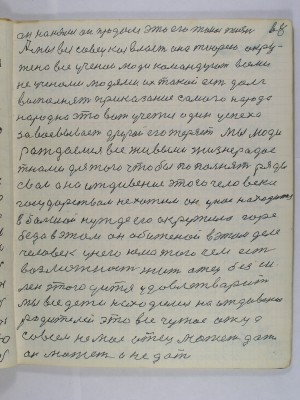 68
он нанбил он продал это его такая жизнь
А мы вы советская власть она теорею окру-
жена все ученые люди командуют всеми
не учеными людями их такой есть долг
выполнять приказание самого народа
народно это вот учетя один успеха
завоевывает другой его теряет мы люди
рождаемся все живыми жизнерадос
тными для того чтобы пополнять ряды
свои а на иждивение этого человека
государством не хотим он уже находится
в большой нужде его окружило горе
беда в этом он обиженой в этом деле
человек у него нема того чем есть
возможность жить отец без си
лен этого дитя удовлетварить
мы все дети находимся на иждивении
родителей это все чужое а му
совсем не мае отец может дать
он может а не дать